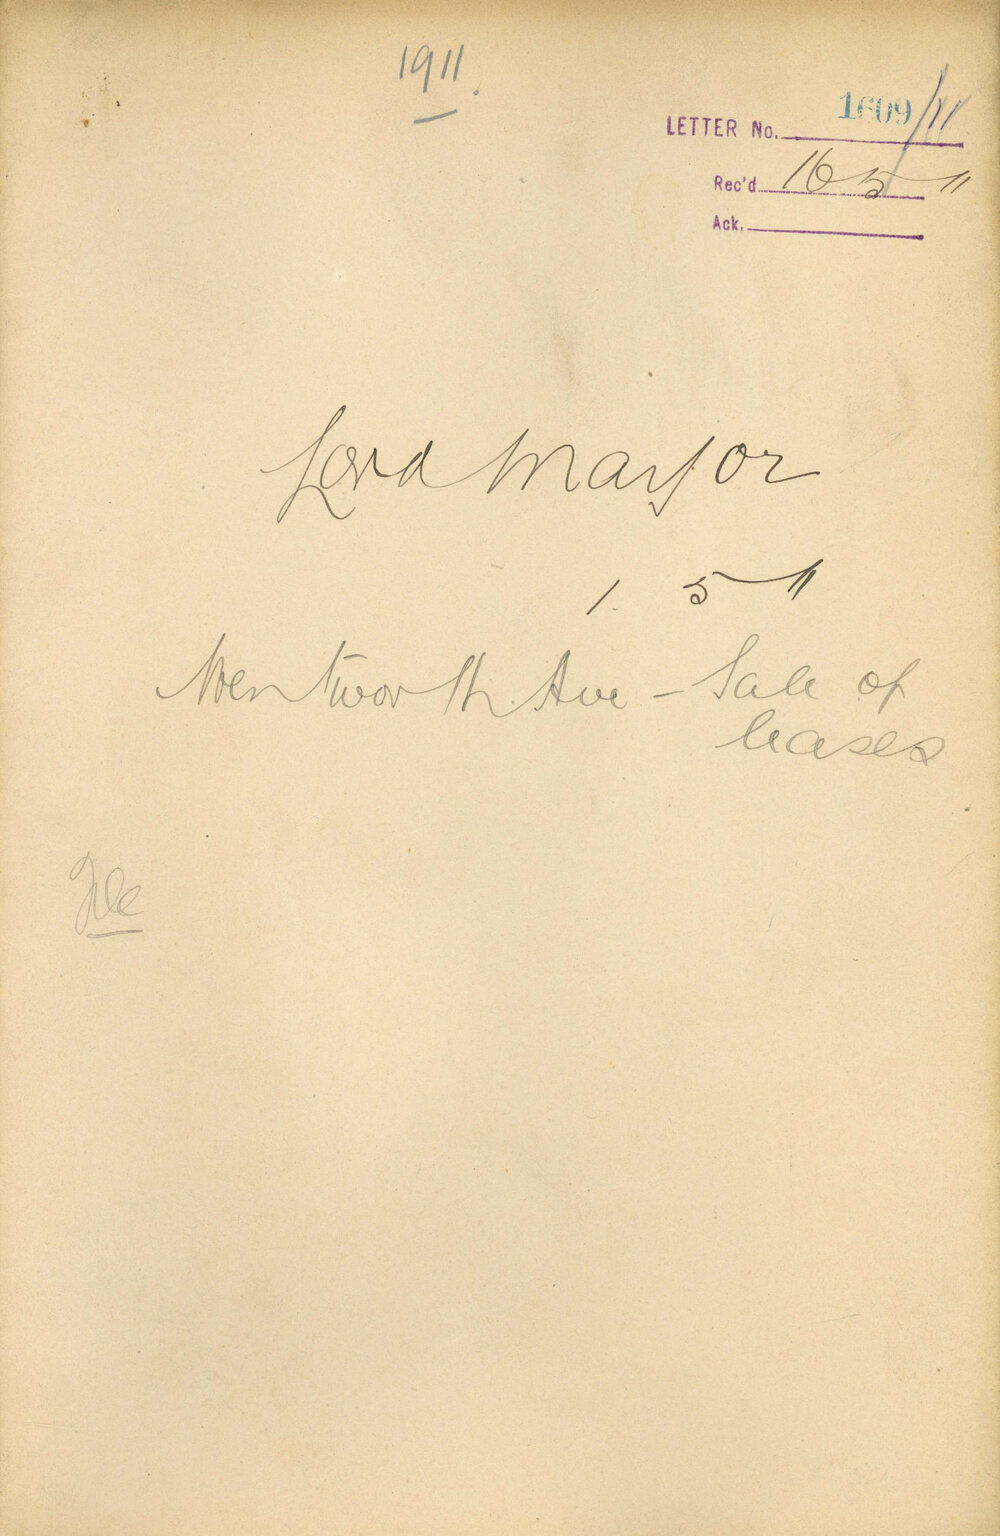 1911.
LETTER No. 1609/11
Rec'd 16 5 11
Ack.
Lord Mayor
1. 5 11
Wentworth Ave - Sale of
leases
File